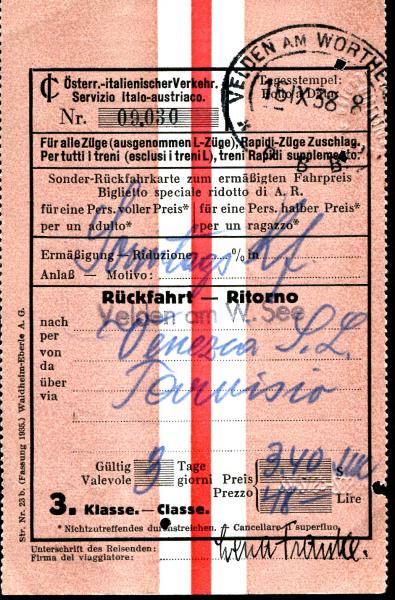 Österr.-italienischer Verkehr.
Servizio Italo-austriaco.
Tagesstempel:
Bollo a Data:
VELDEN AM WÖRTHE
IX 38 8
Nr. 09,030
Für alle Züge (ausgenommen L-Züge), Rapidi-Züge Zuschlag.
Per tutti i treni (esclusi i treni L), treni Rapidi supplemento.
Sonder-Rückfahrkarte zum ermäßigten Fahrpreis
Biglietto speciale ridotto di A. R.
für eine Pers. voller Preis* für eine Pers. halber Preis*
per un adulto* per un ragazzo*
Sonntags Kf.
Ermäßigung — Riduzione: % in
Anlaß — Motivo:
Rückfahrt — Ritorno
Velden am W. See
nach
per
Venezia S. L.
von
da
Tarvisio
über
via
Gültig 3 Tage
Valevole giorni
Preis 3.40 S
Prezzo 48 Lire
3. Klasse. — Classe.
* Nichtzutreffendes durchstreichen. — Cancellare il superfluo.
Unterschrift des Reisenden:
Firma del viaggiatore:
Str. Nr. 23 b. (Fassung 1935.) Waldheim-Eberle A. G.